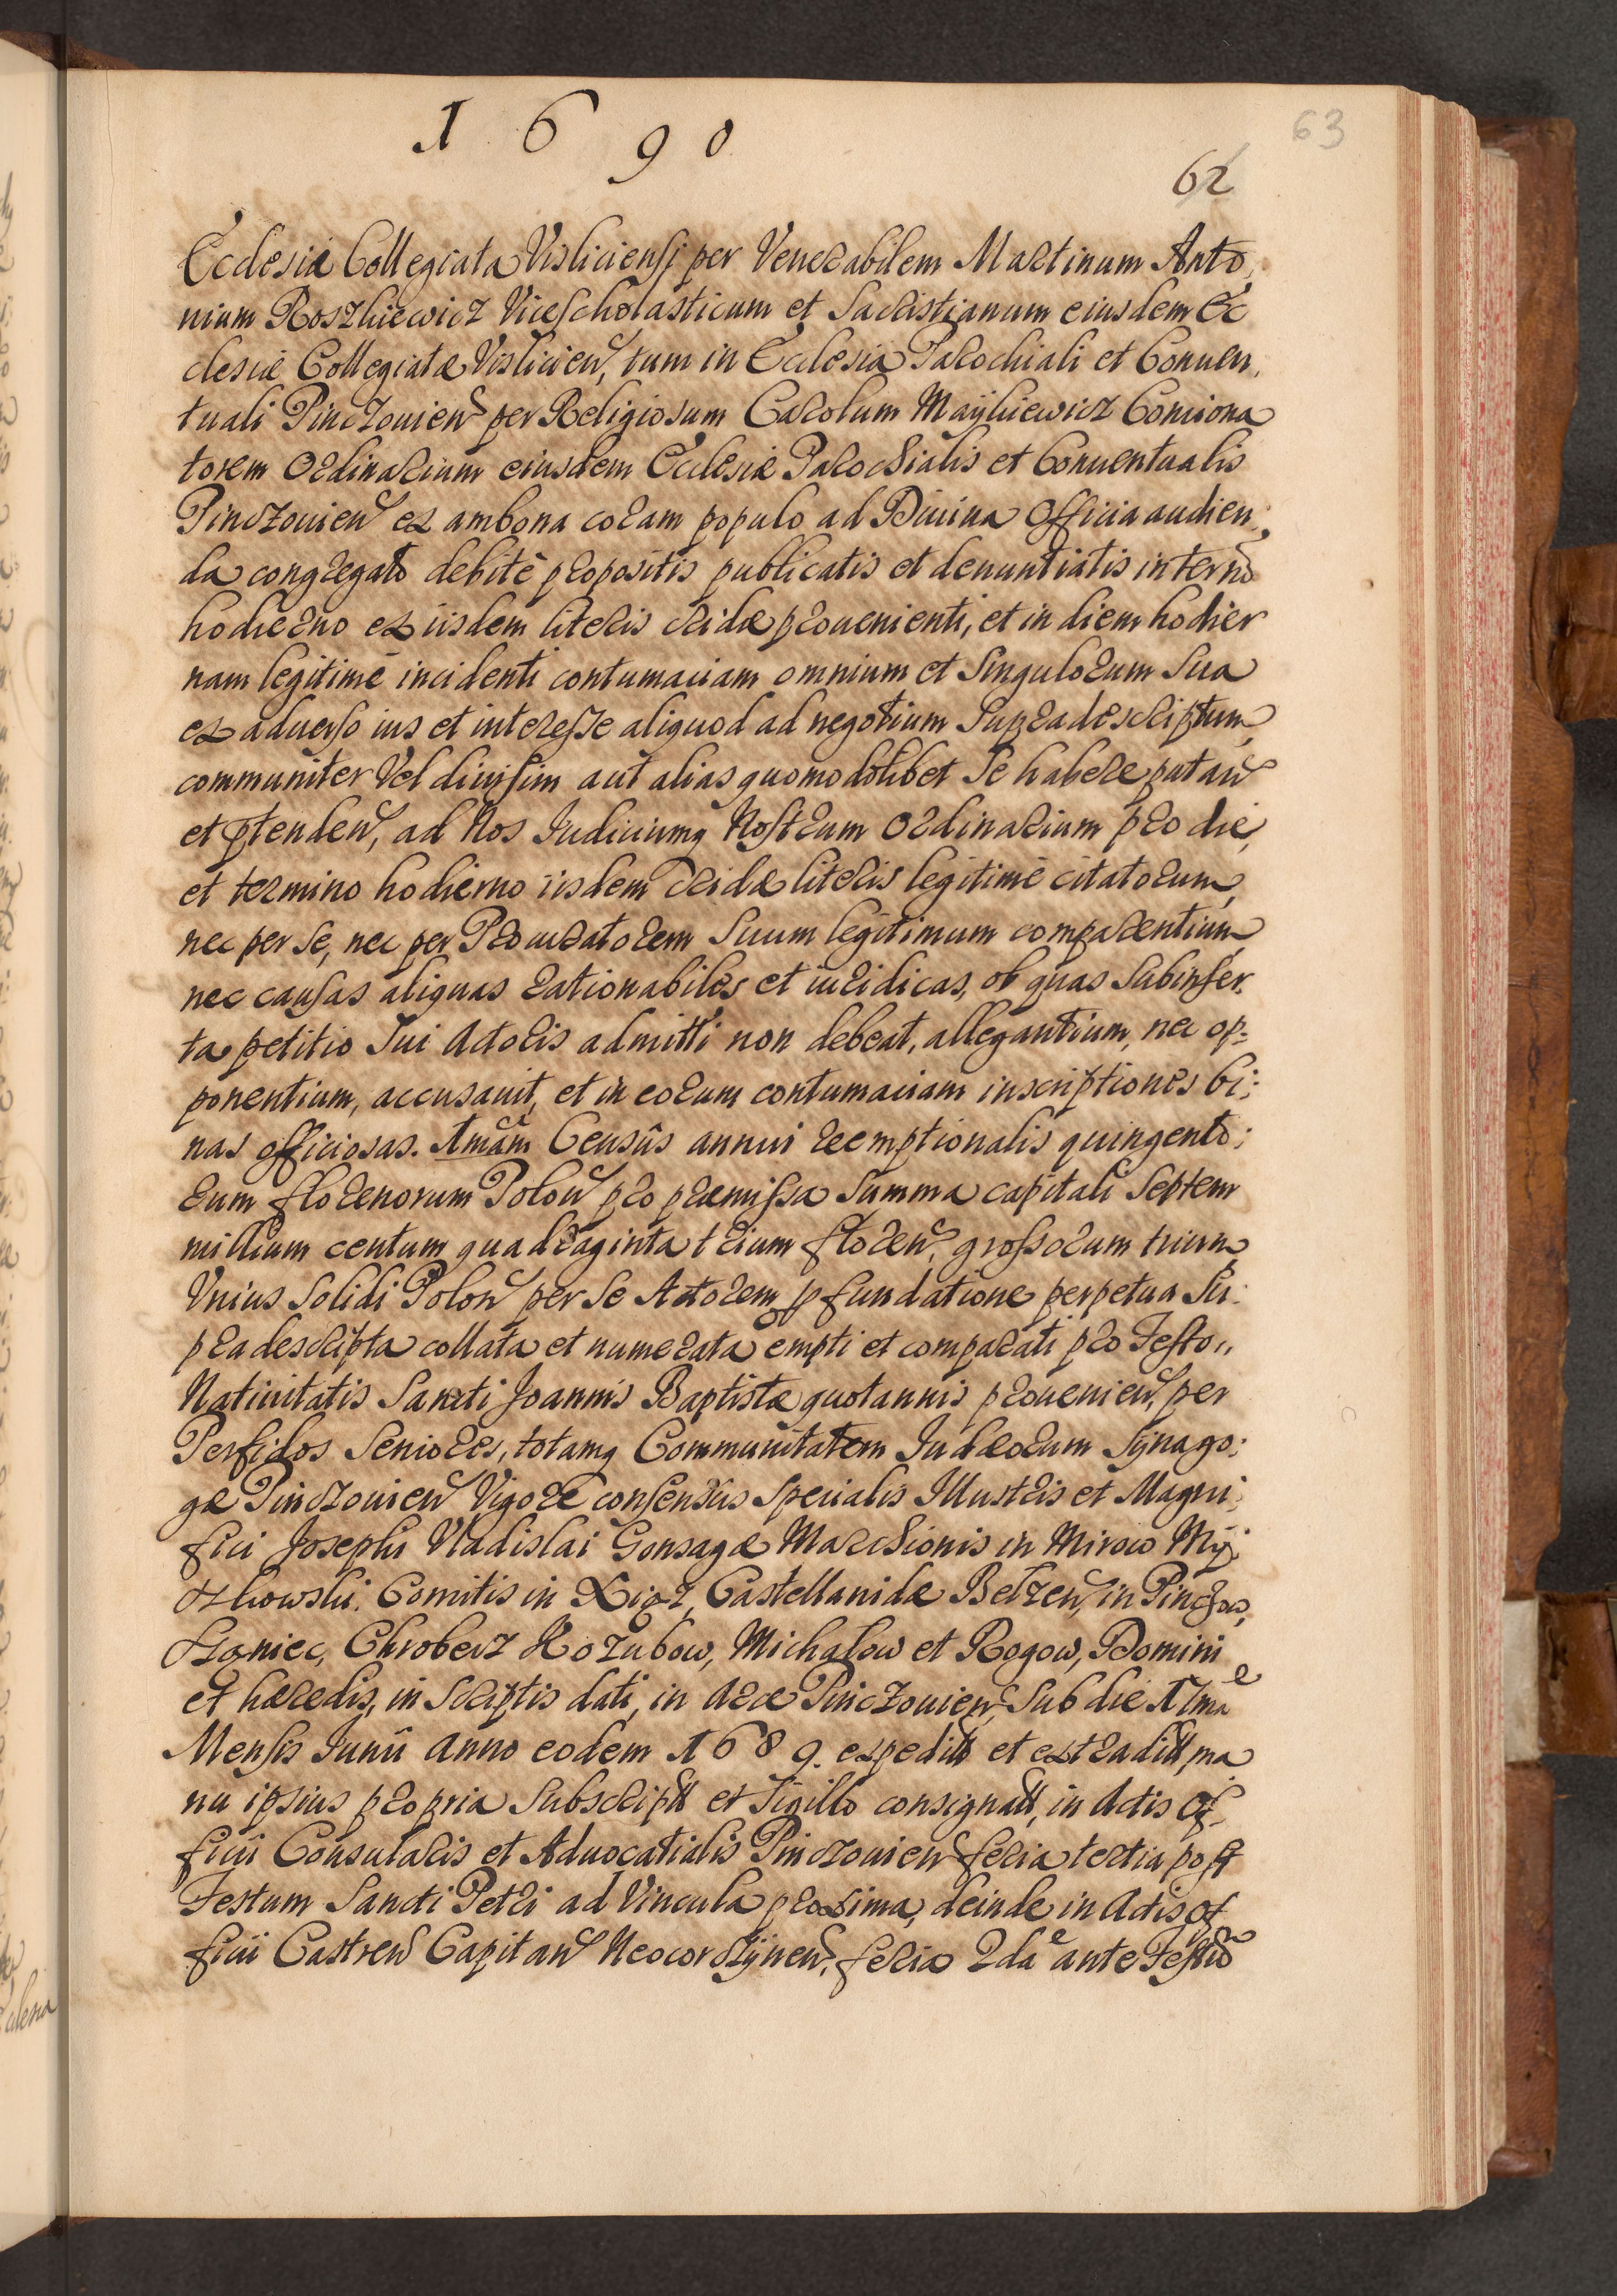 1690
63
62
Ecclesiæ Collegiata Visliciensi per Venerabilem Martinum Anto,
nium Roszkiewicz Vicescholasticum et Sacristianum eiusdem Ec
clesiæ Collegiatæ Vislicien, tum in Ecclesia Parochiali et Conuen,
tuali Pinczouien per Religiosum Carolum Maykiewicz Conciona
torem Ordinarium eiusdem Ecclesiæ Parochialis et Conuentualis
Pinczouien ex ambona coram populo ad Diuina Officia audien;
da congregato debitè propositis publicatis et denuntiatis in termo
hodierno ex iisdem literis cridæ prouenienti, et in diem hodier
nam legitimè incidenti contumaciam omnium et Singulorum Sua
ex aduerso ius et interesse aliquod ad negotium Supradescriptum
communiter Vel diuisim aut alias quomodolibet Se habere putan
et ptenden, ad Nos Iudiciumq Nostrum Ordinarium pro die,
et termino hodierno iisdem Cridæ literis legitimè citatorum,
nec per Se, nec per Procuratorem Suum legitimum comparentium
nec causas aliquas rationabiles et iuridicas, ob quas Subinser,
ta petitio Sui Actoris admitti non debeat, allegantium, nec op=
ponentium, accusauit, et in eorum contumaciam inscriptiones bi:
nas officiosas. Amam Censûs annui reemptionalis quingento;
rum florenorum Polon pro præmissa Summa capitali Septem
millium centum quadraginta trium floren, grossorum trium
Vnius Solidi Polon per Se Actorem p fundatione perpetua Su:
pradescripta collata et numerata empti et comparati pro Festo,,
Natiuitatis Sancti Joannis Baptistæ quotannis prouenien, per
Perfidos Seniores, totamq Communitatem Iudæorum Synago:
gæ Pinczouien Vigore consensûs Specialis Illustris et Magni;
fici Josephi Vladislai Gonsagæ Marchionis in Mirow My;
szkowski. Comitis in Xiąz, Castellanidæ Belzen, in Pinczow,
Szaniec, Chroberz Kozubow, Michalow et Rogow, Domini
et hæredis, in Scriptis dati, in Arce Pinczouien, Sub die 17ma
Mensis Iunii Anno eodem 1689. expedit et extradit ma
nu ipsius propria Subscript et Sigillo consignat, in Actis Of,
ficii Consularis et Aduocatialis Pinczouien feria tertia post
Festum Sancti Petri ad Vincula proxima, deinde in Actis Of
ficii Castren Capitan Neocorczynen, feria 2da ante Festum